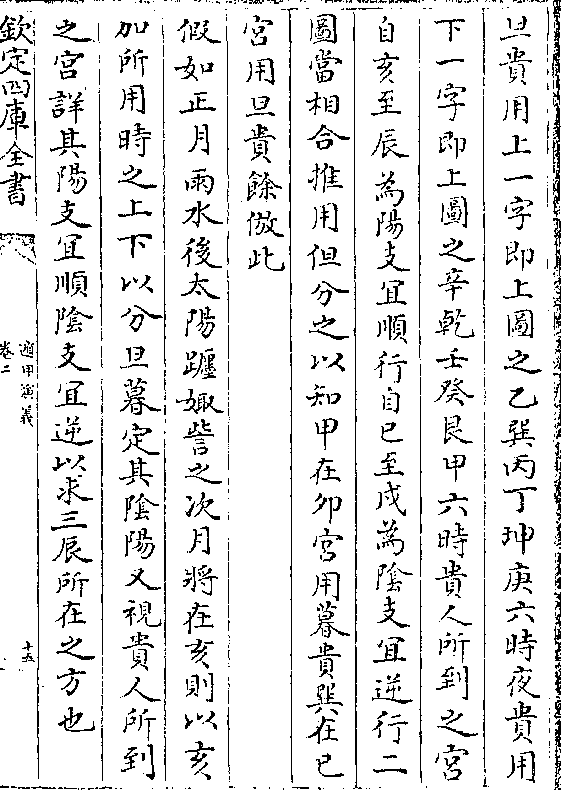 旦貴用上一字即上圖之乙巽丙丁坤庚六時夜貴用
下一字即上圖之辛乾壬癸艮甲六時貴人所到之宮
自亥至辰為陽支宜順行自巳至戌為陰支宜逆行二
圖當相合推用但分之以知甲在卯宮用暮貴巽在巳
宮用旦貴餘倣此
假如正月雨水後太陽躔娵訾之次月將在亥則以亥
加所用時之上下以分旦暮定其陰陽又視貴人所到
之宮詳其陽支宜順陰支宜逆以求三辰所在之方也
欽定四庫全書
遁甲演義
卷二
十五